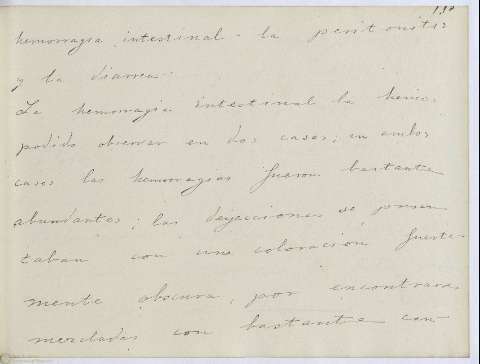 hemorragia intestinal - la peritonitis
y la diarrea.
La hemorragia intestinal la hemos
podido observar en dos casos; en ambos
casos las hemorragias fueron bastante
abundantes; las deyecciones se presen
taban con una coloración fuerte-
mente obscura, por encontrarse
mezcladas con bastante can